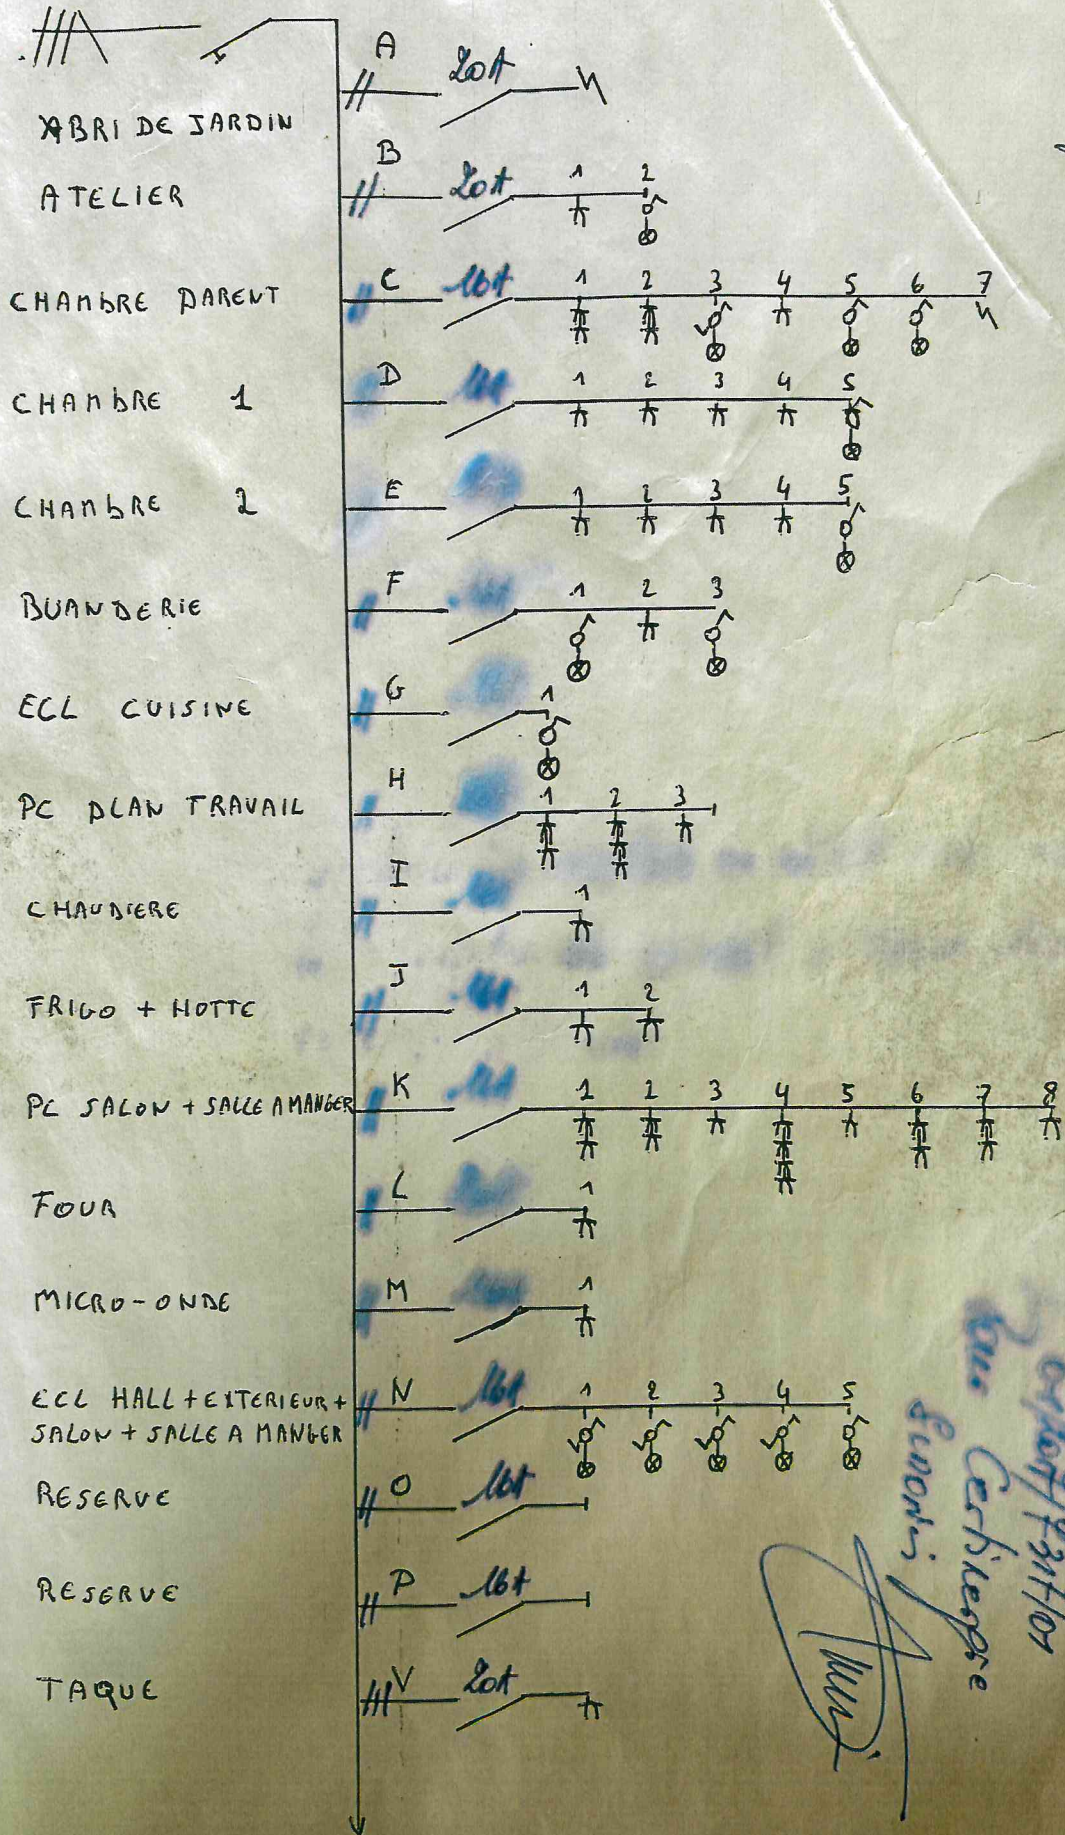 A
20A
ABRI DE JARDIN
B
ATELIER 20A 1 2
CHAMBRE PARENT C 16A 1 2 3 4 5 6 7
CHAMBRE 1 D 16A 1 2 3 4 5
CHAMBRE 2 E 1 2 3 4 5
BUANDERIE F 1 2 3
ECL CUISINE G 1
PC PLAN TRAVAIL H 1 2 3
CHAUDIERE I 1
FRIGO + HOTTE J 16A 1 2
PC SALON + SALLE A MANGER K 16A 1 2 3 4 5 6 7 8
FOUR L 1
MICRO-ONDE M 1
ECL HALL + EXTERIEUR + N 16A 1 2 3 4 5
SALON + SALLE A MANGER
RESERVE O 16A
RESERVE P 16A
TAQUE V 20A